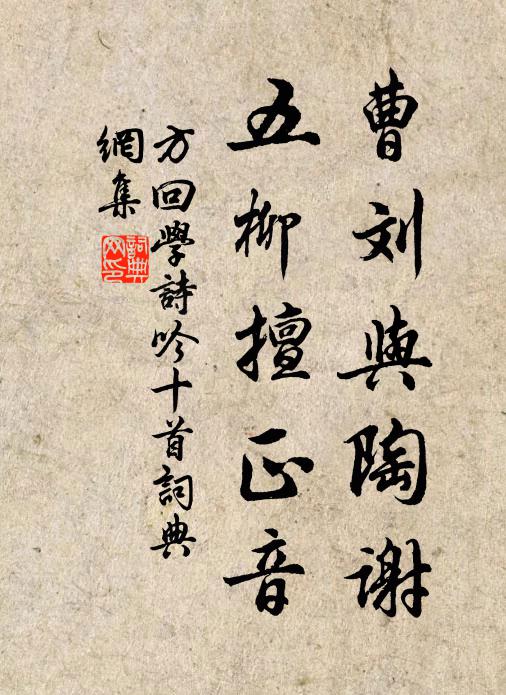 曹刘與陶谢
五柳擅正音
方回學詩吟十首詞典
網集
詞典網印